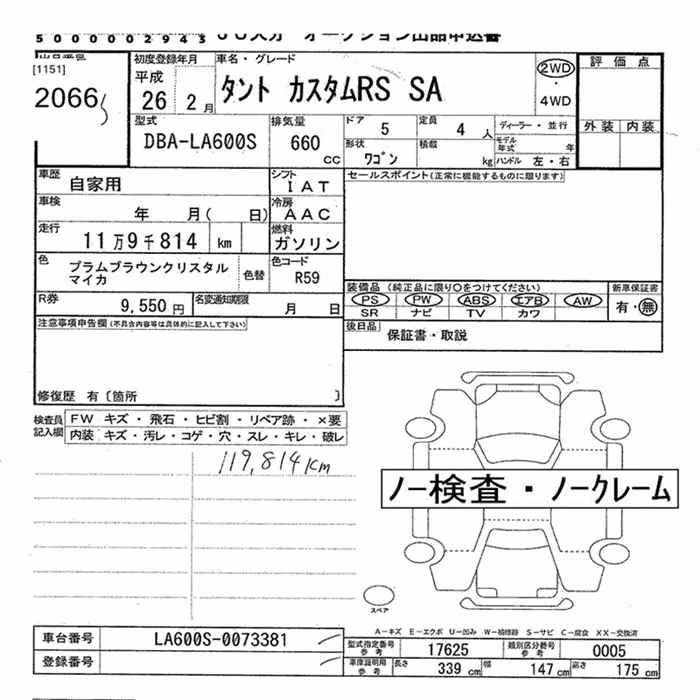 5000002943 JU大分 オークション出品申込書
[1151]
2066
初度登録年月 車名・グレード
平成 26 2月 タント カスタムRS SA
2WD ・ 4WD
評価点
外装 内装
型式 DBA-LA600S
排気量 660 cc
ドア 5 定員 4 人
形状 ワゴン 積載 kg
ディーラー・並行
モデル年式 年
ハンドル 左・右
車歴 自家用
シフト IAT
セールスポイント(正常に機能するものに限ります)
車検 年 月( 日)
冷房 AAC
走行 11万9千814 km
燃料 ガソリン
色 プラムブラウンクリスタルマイカ 色替
色コード R59
装備品(純正品に限り○をつけてください) 新車保証書
PS PW ABS エアB AW 有・無
SR ナビ TV カワ
R券 9,550円 名変通知期限 月 日
後日品 保証書・取説
注意事項申告欄(不具合内容等は具体的に記入して下さい)
修復歴 有〔箇所 〕
検査員記入欄
FW キズ・飛石・ヒビ割・リペア跡・×要
内装 キズ・汚レ・コゲ・穴・スレ・キレ・破レ
119,814km
ノー検査・ノークレーム
スペア
A-キズ E-エクボ U-凹み W-補修跡 S-サビ C-腐食 XX-交換済
車台番号 LA600S-0073381
登録番号
型式指定番号 参考 17625 類別区分番号 参考 0005
車庫証明用 参考 長さ 339 cm 幅 147 cm 高さ 175 cm